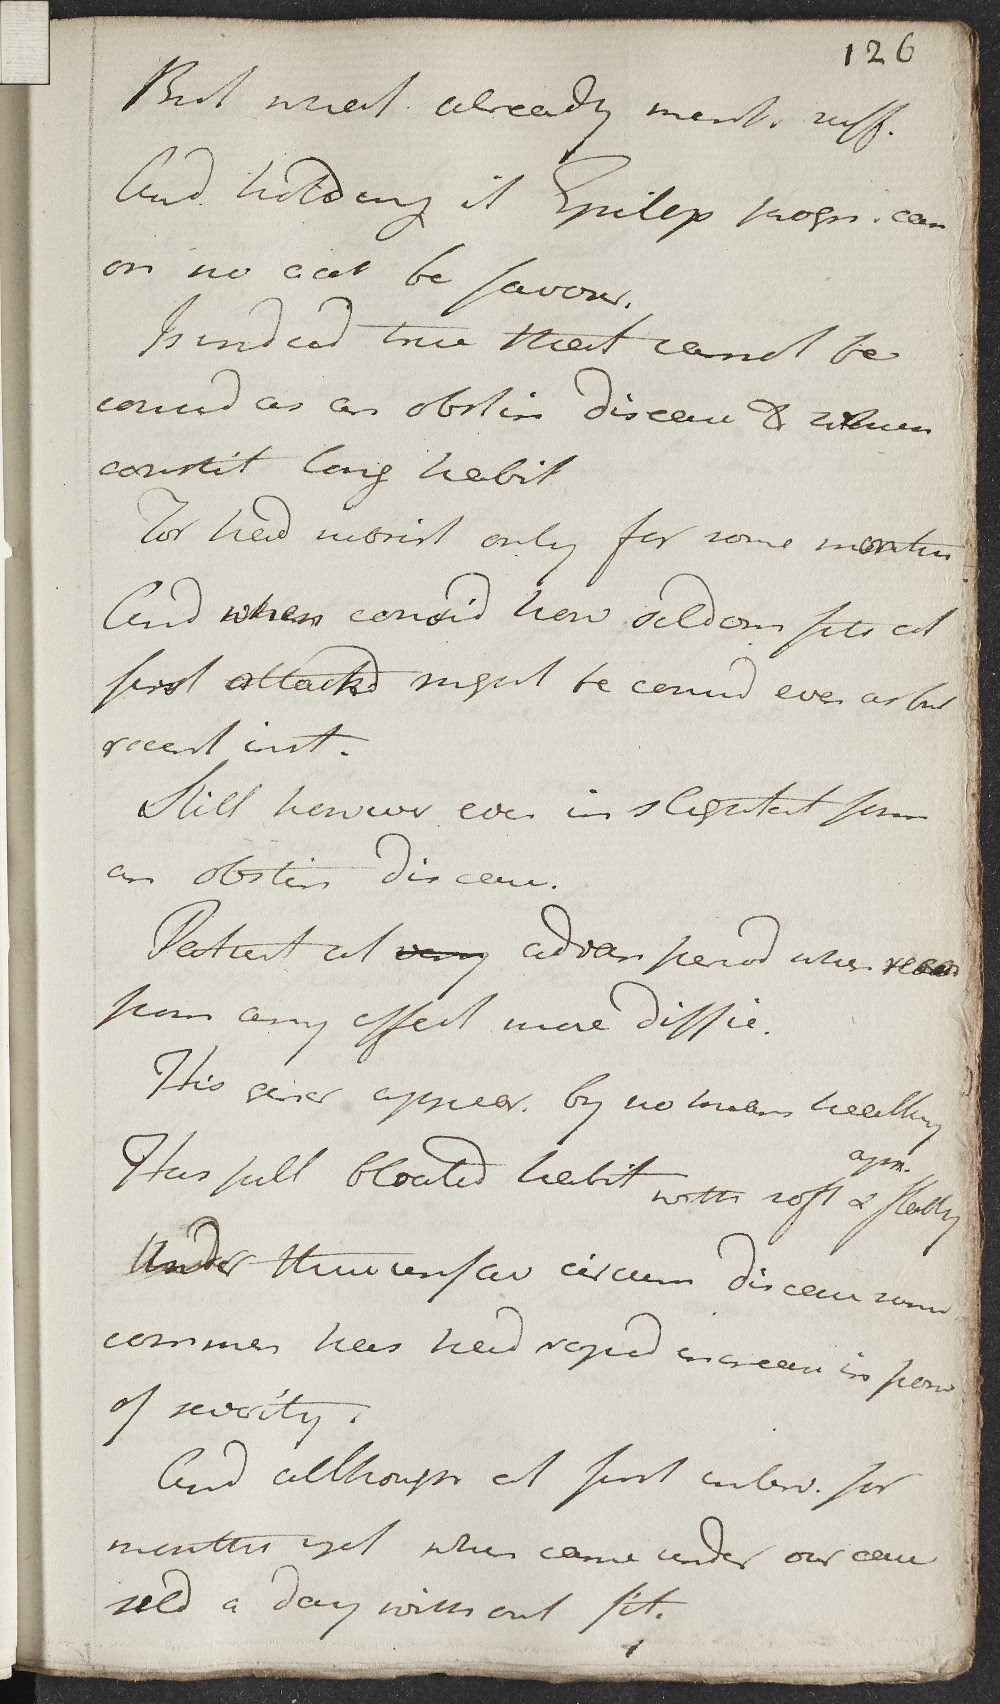 126
But what already ment. suff.
And holding it Epilep progn. can
on no acct be favour.
Is indeed true that cannot be
consid as an obstin disease & when
constit long habit
For had subsist only for some months
And when consid how seldom fits at
first attackd might be consid even as but
recent inst.
Still however even in slightest form
an obstin disease.
Patient at very advan period when recov
from any affect more diffic.
His gener appear. by no means healthy
Has full bloated habit with soft & flabby
apn.
Under these unfav circum disease since
commen has had rapid increase in point
of severity.
And although at first interv. for
months yet when came under our care
seld a day without fit.